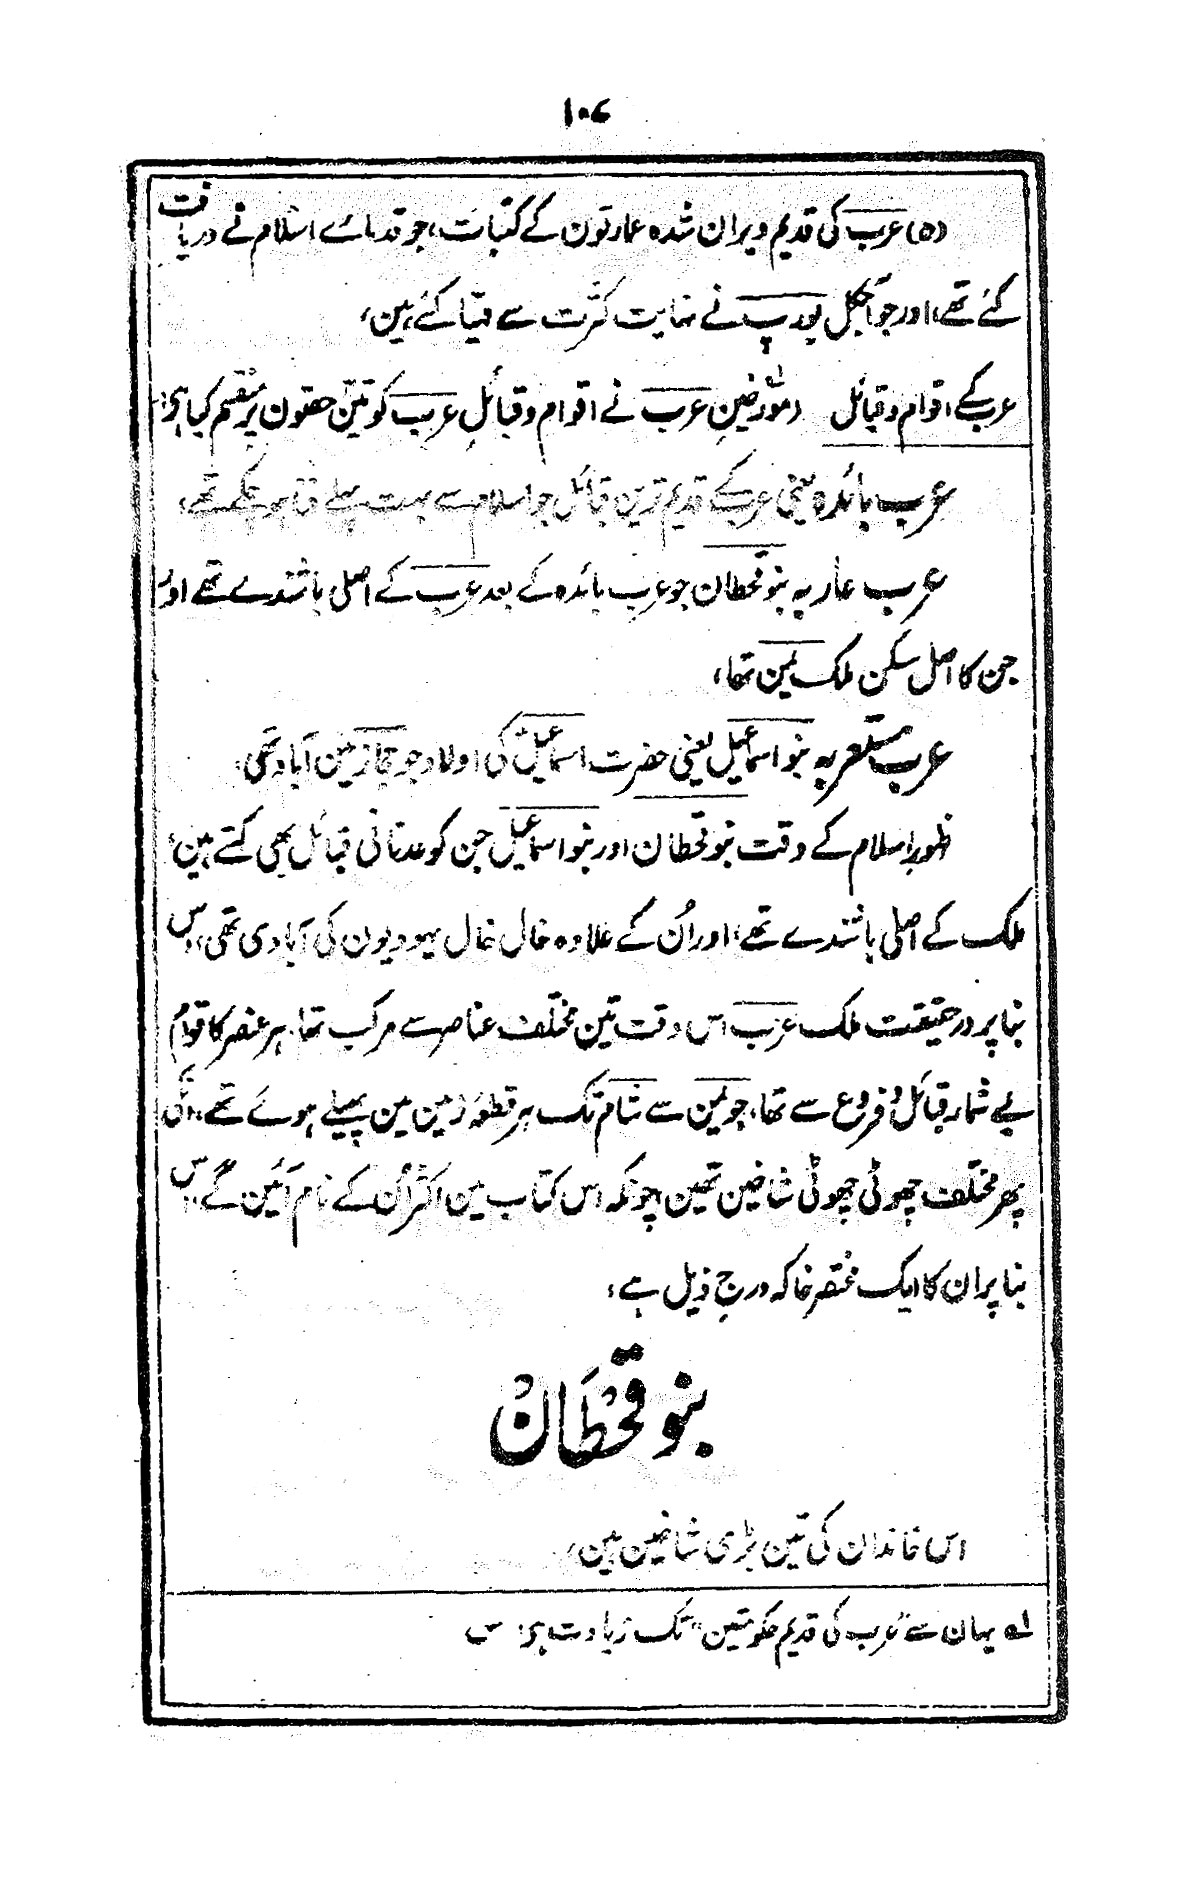 ۱۰۷
(۵) عرب کی قدیم ویران شدہ عمارتون کے کتبات، جو قدماے اسلام نے دریافت
کئے تھے، اور جو آجکل یورپ نے نہایت کثرت سے مہیا کئے ہین،
عرب کے اقوام و قبائل (مورخین عرب نے اقوام و قبائلِ عرب کو تین حصّون پر منقسم کیا ہی:
عرب بائدہ یعنی عرب کے قدیم ترین قبائل جو اسلام سے بہت پہلے فنا ہو چکے تھے،
عرب عاربہ بنو قحطان جو عرب بائدہ کے بعد عرب کے اصلی باشندے تھے اور
جن کا اصل مسکن ملک یمن تھا،
عرب مستعربہ بنو اسماعیل یعنی حضرت اسماعیلؑ کی اولاد جو حجاز مین آباد تھی،
ظہورِ اسلام کے وقت بنو قحطان اور بنو اسماعیل جن کو عدنانی قبائل بھی کہتے ہین،
ملک کے اصلی باشندے تھے، اور اُن کے علاوہ خال خال یہودیون کی آبادی تھی، اس
بنا پر در حقیقت ملک عرب اس وقت تین مختلف عناصر سے مرکب تھا، ہر عنصر کا قوام
بے شمار قبائل و فروع سے تھا، جو یمن سے شام تک ہر قطعۂ زمین مین پھیلے ہوئے تھے، انکی
پھر مختلف چھوٹی چھوٹی شاخین تھین، چونکہ اس کتاب مین اکثر اُن کے نام آئین گے، اس
بنا پر ان کا ایک مختصر خاکہ درجِ ذیل ہے،
بنو قحطان
اس خاندان کی تین بڑی شاخین ہین،
لہ یہان سے "عرب کی قدیم حکومتین" تک زیادت ہی، س